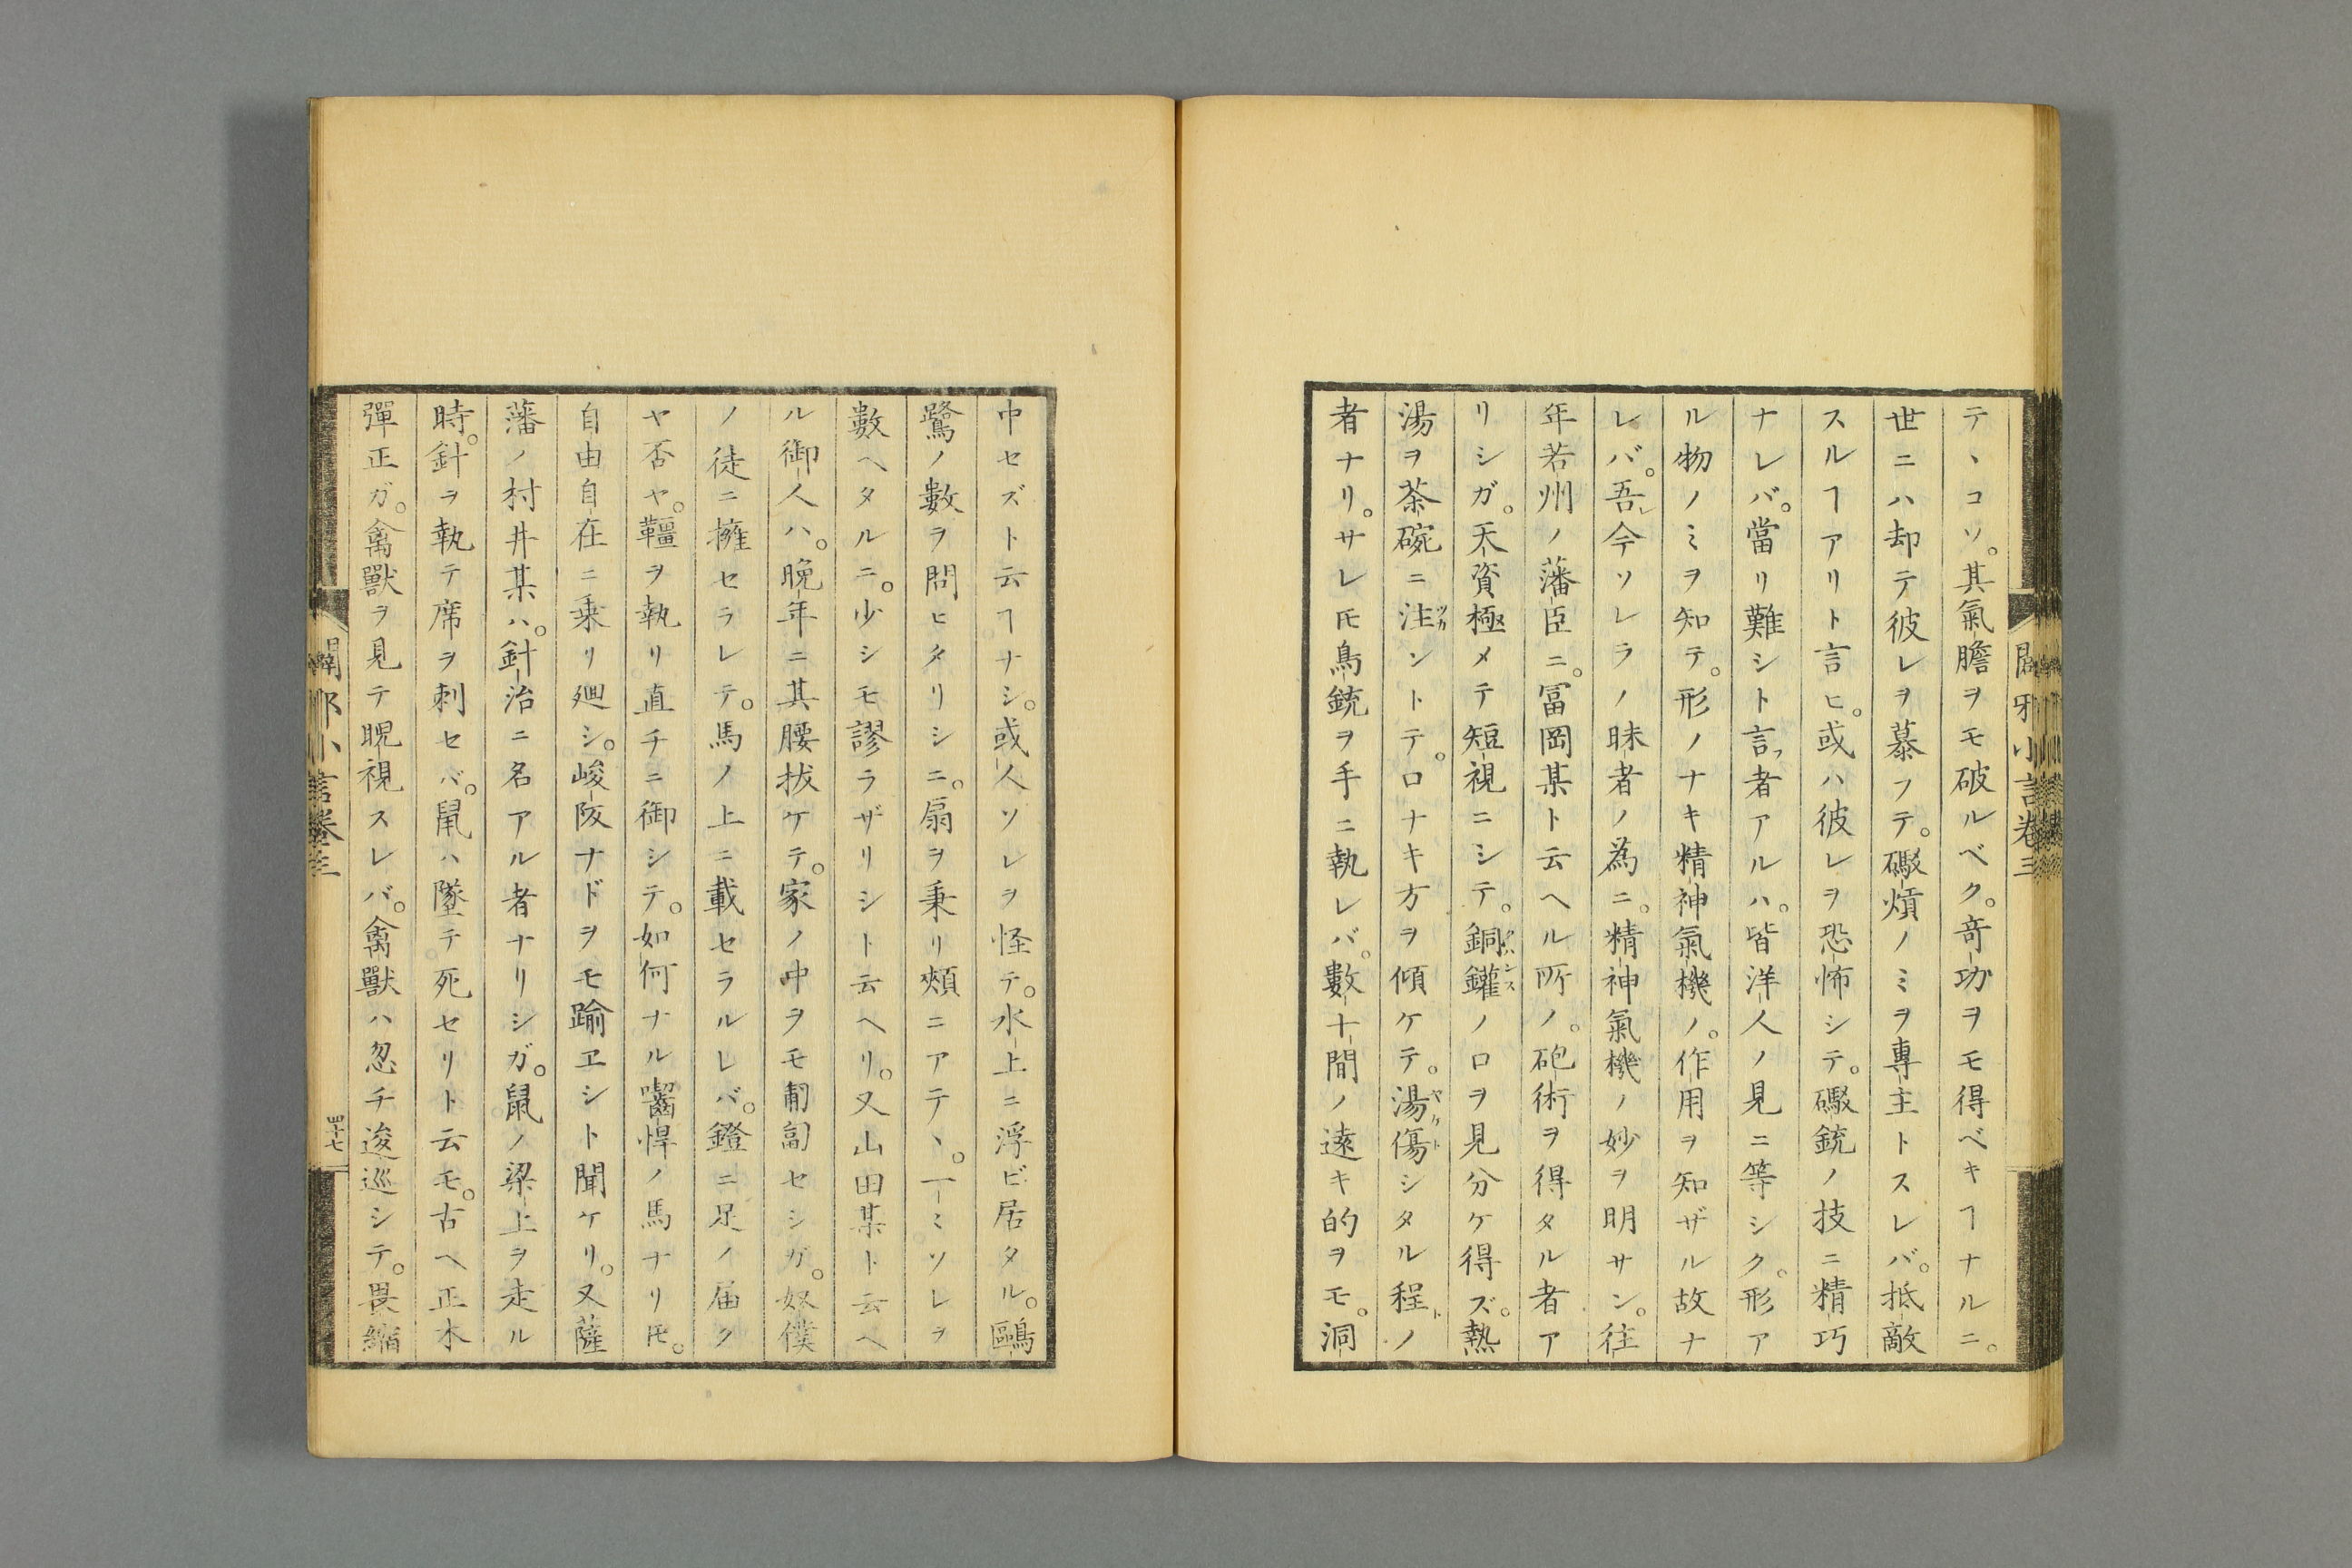 闢邪小言卷三
テヽコソ。其氣膽ヲモ破ルベク。竒功ヲモ得ベキヿナルニ。
世ニハ却テ彼レヲ慕フテ。礟熕ノミヲ專主トスレバ。抵敵
スルヿアリト言ヒ。或ハ彼レヲ恐怖シテ。礟銃ノ技ニ精巧
ナレバ。當リ難シト言フ者アルハ。皆洋人ノ見ニ等シク。形ア
ル物ノミヲ知テ。形ノナキ精神氣機ノ。作用ヲ知ザル故ナ
レバ。吾レ今ソレラノ昧者ノ為ニ。精神氣機ノ妙ヲ明サン。往
年若州ノ藩臣ニ。冨岡某ト云ヘル所ノ。砲術ヲ得タル者ア
リシガ。天資極メテ短視ニシテ。銅鑵ノロヲ見分ケ得ズ。熱
湯ヲ茶碗ニ注ツカントテ。ロナキ方ヲ傾ケテ。湯傷ヤケトシタル程トノ
者ナリ。サレ𪜈鳥銃ヲ手ニ執レバ。數十間ノ遠キ的ヲモ。洞
中セズト云ヿナシ。或人ソレヲ怪テ。水上ニ浮ビ居タル。鷗
鷺ノ數ヲ問ヒタリシニ。扇ヲ秉リ頰ニアテヽ。一ミソレヲ
數ヘタルニ。少シモ謬ラザリシト云ヘリ。又山田某ト云ヘ
ル御人ハ。晩年ニ其腰拔ケテ。家ノ中ヲモ匍匐セシガ。奴僕
ノ徒ニ擁セラレテ。馬ノ上ニ載セラルレバ。鐙ニ足ノ届ク
ヤ否ヤ。韁ヲ執リ直チニ御シテ。如何ナル囓悍ノ馬ナリ𪜈。
自由自在ニ乗リ廻シ。峻阪ナドヲモ踰ヱシト聞ケリ。又薩
藩ノ村井某ハ。針治ニ名アル者ナリシガ。鼠ノ梁上ヲ走ル
時。針ヲ執テ席ヲ刺セバ。鼠ハ墜テ死セリト云モ。古ヘ正木
彈正ガ。禽獸ヲ見テ睨視スレバ。禽獸ハ忽チ逡巡シテ。畏縮
闢邪小言卷三
四十七